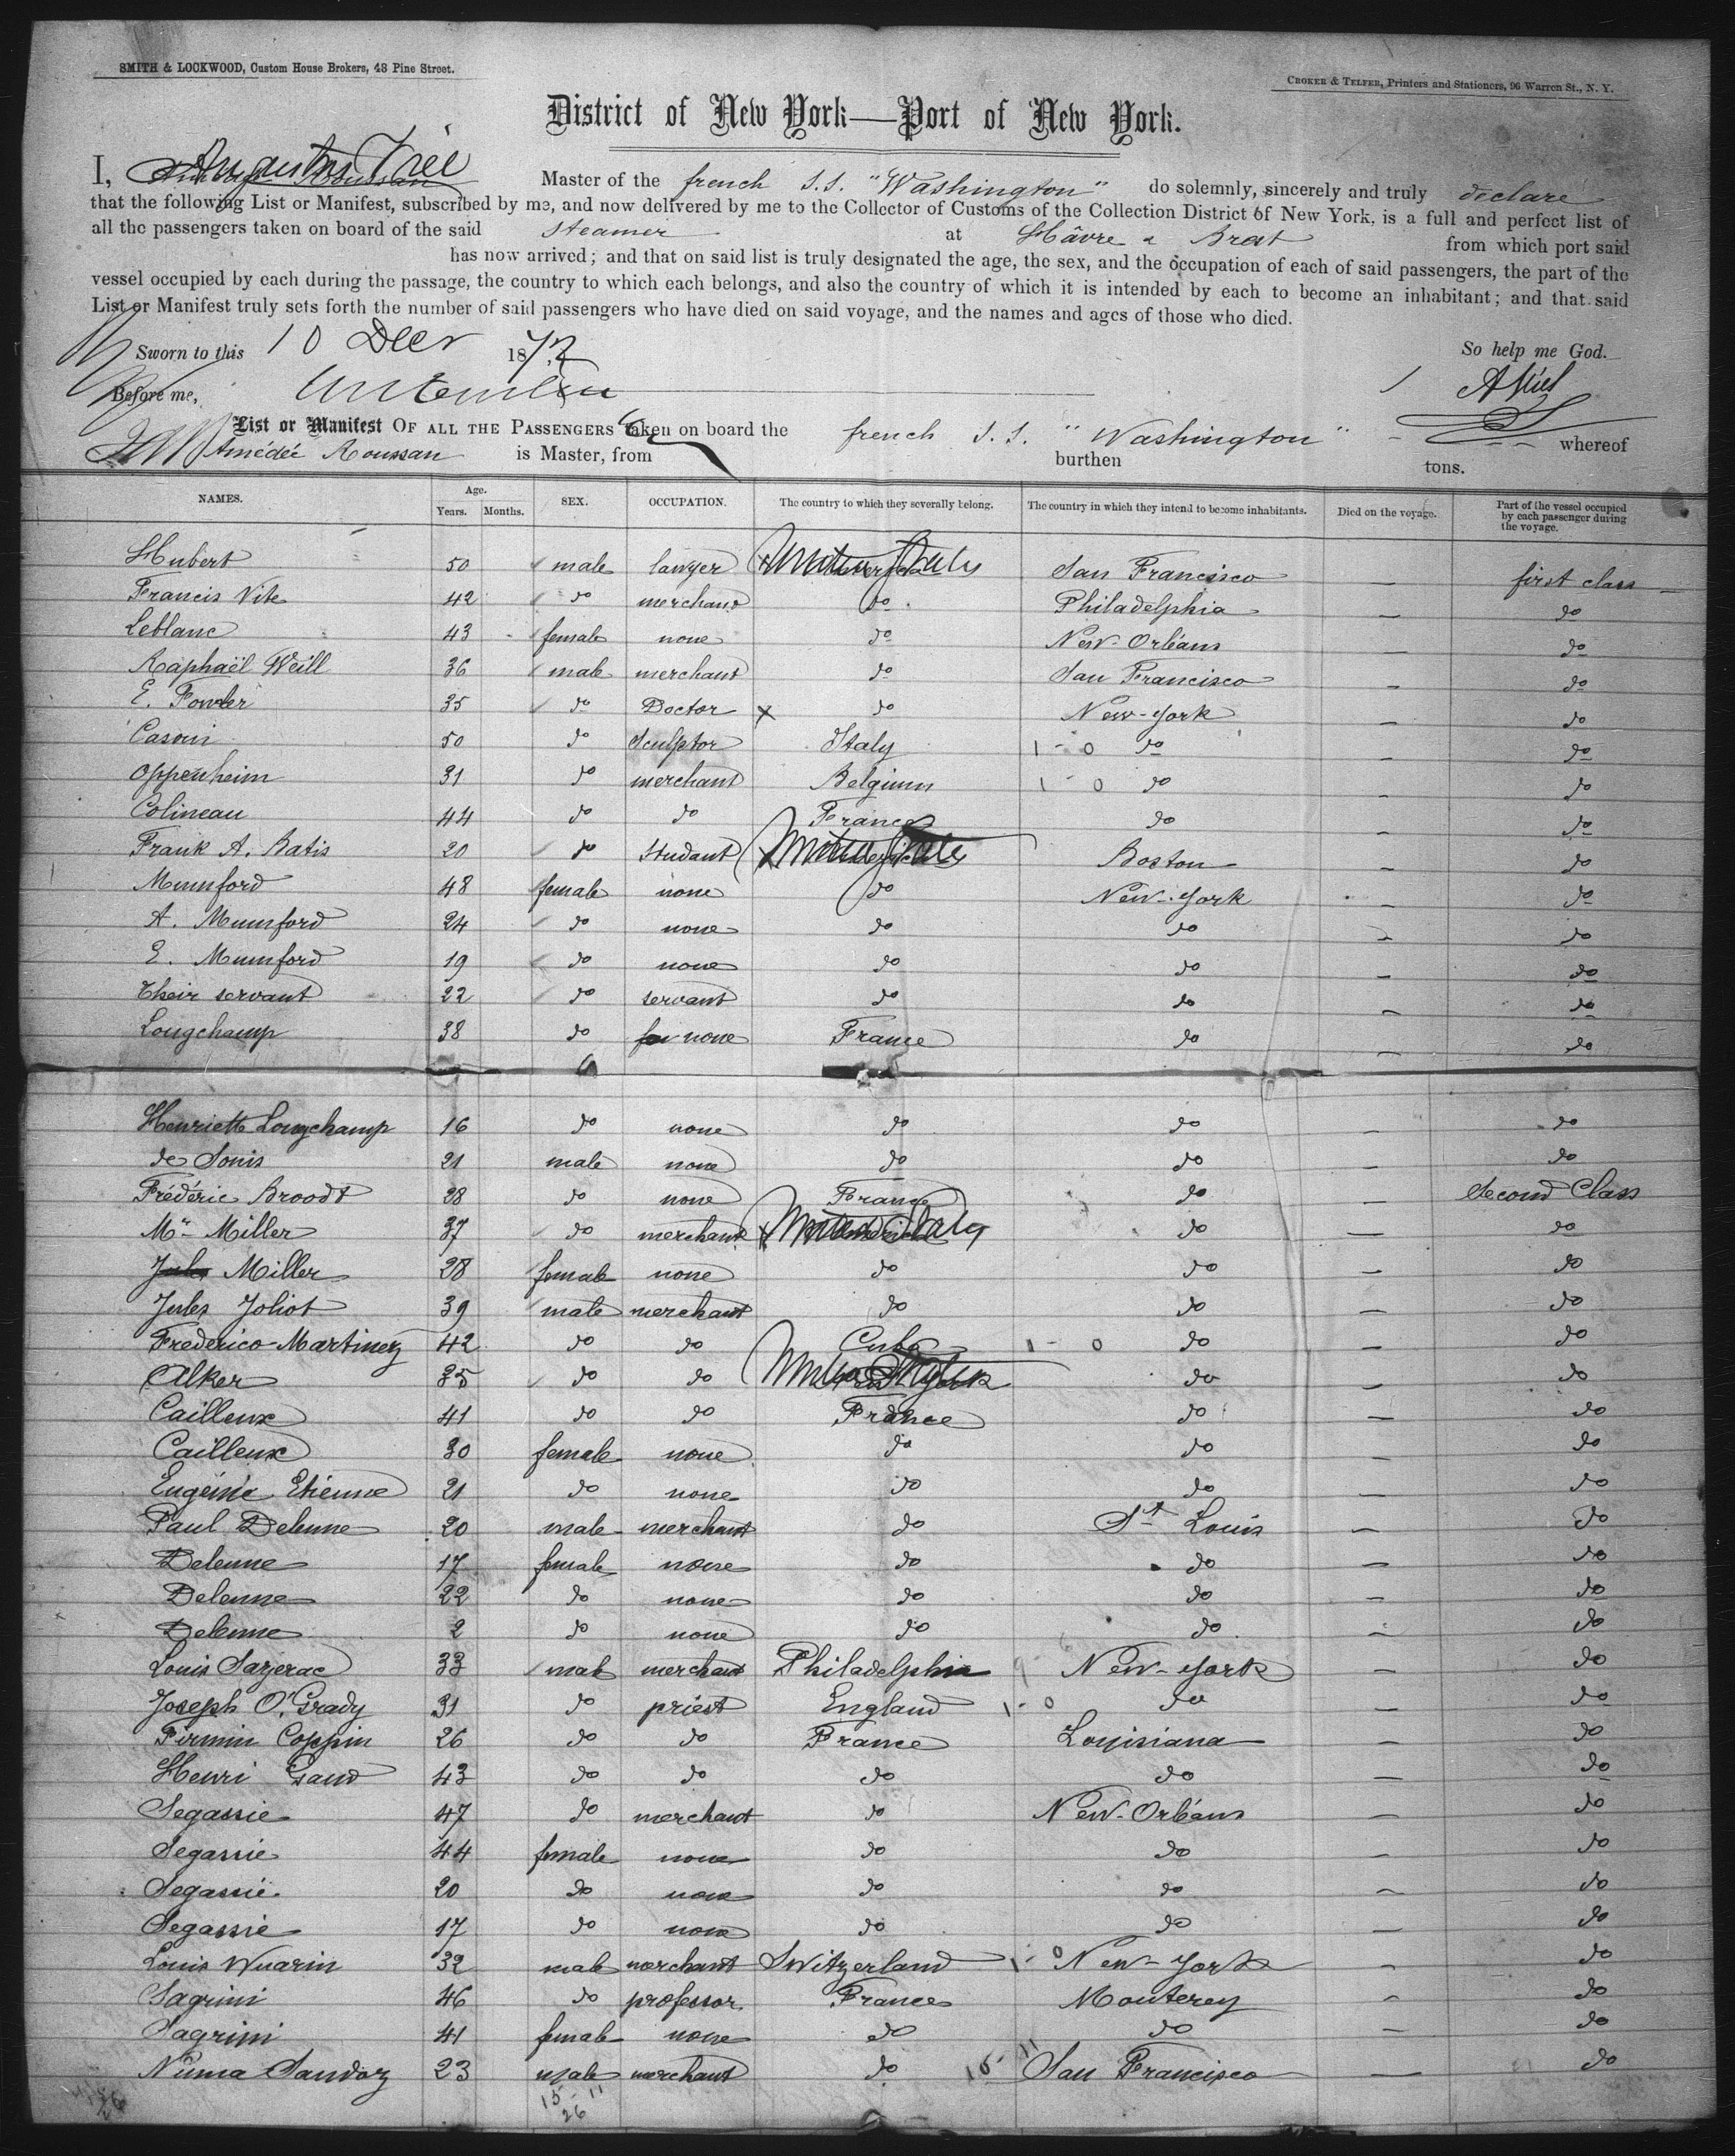 SMITH & LOCKWOOD, Custom House Brokers, 48 Pine Street.
CROKER & TELFER, Printers and Stationers, 96 Warren St., N. Y.
District of New York—Port of New York.
I, Augustus Tree Master of the french S.S. "Washington" do solemnly, sincerely and truly declare
that the following List or Manifest, subscribed by me, and now delivered by me to the Collector of Customs of the Collection District of New York, is a full and perfect list of
all the passengers taken on board of the said steamer at Hâvre & Brest from which port said
has now arrived; and that on said list is truly designated the age, the sex, and the occupation of each of said passengers, the part of the
vessel occupied by each during the passage, the country to which each belongs, and also the country of which it is intended by each to become an inhabitant; and that said
List or Manifest truly sets forth the number of said passengers who have died on said voyage, and the names and ages of those who died.
Sworn to this 10 Decr 1872 So help me God.
Before me,
List or Manifest OF ALL THE PASSENGERS taken on board the french S.S. "Washington" whereof
Amédée Roussan is Master, from burthen tons.
NAMES. Age. Years. Months. SEX. OCCUPATION. The country to which they severally belong. The country in which they intend to become inhabitants. Died on the voyage. Part of the vessel occupied by each passenger during the voyage.
Hubert 50 male lawyer United States San Francisco — first class
Francis Vite 42 do merchant do Philadelphia — do
Leblanc 43 female none do New-Orléans — do
Raphaël Weill 36 male merchant do San Francisco — do
E. Fowler 35 do Doctor x do New-York — do
Casoni 50 do sculptor Italy 1 - 0 do — do
Oppenheim 31 do merchant Belgium 1 - 0 do — do
Colineau 44 do do France do — do
Frank A. Batis 20 do student United States Boston — do
Mumford 48 female none do New-York — do
A. Mumford 24 do none do do — do
E. Mumford 19 do none do do — do
Their servant 22 do servant do do — do
Longchamp 38 do none France do — do
Henriette Longchamp 16 do none do do — do
de Sonis 21 male none do do — do
Frédéric Broodt 28 do none France do — Second Class
Mr Miller 37 do merchant x United States do — do
Miller 28 female none do do — do
Jules Joliot 39 male merchant do do — do
Frederico Martinez 42 do do Cuba 1 - 0 do — do
Alker 35 do do United States do — do
Cailleux 41 do do France do — do
Cailleux 30 female none do do — do
Eugénie Etienne 21 do none do do — do
Paul Delenne 20 male merchant do St Louis — do
Delenne 17 female none do do — do
Delenne 22 do none do do — do
Delenne 2 do none do do — do
Louis Sazerac 33 male merchant Philadelphia New-York — do
Joseph O'Grady 31 do priest England 1 - 0 do — do
Firmin Coppin 26 do do France Louisiana — do
Henri Gand 43 do do do do — do
Segassie 47 do merchant do New-Orléans — do
Segassie 44 female none do do — do
Segassie 20 do none do do — do
Segassie 17 do none do do — do
Louis Wuarin 32 male merchant Switzerland 1 - 0 New-York — do
Sagrini 46 do professor France Monterey — do
Sagrini 41 female none do do — do
Numa Sandoz 23 male merchant do 15 11 San Francisco — do
15 - 11
26